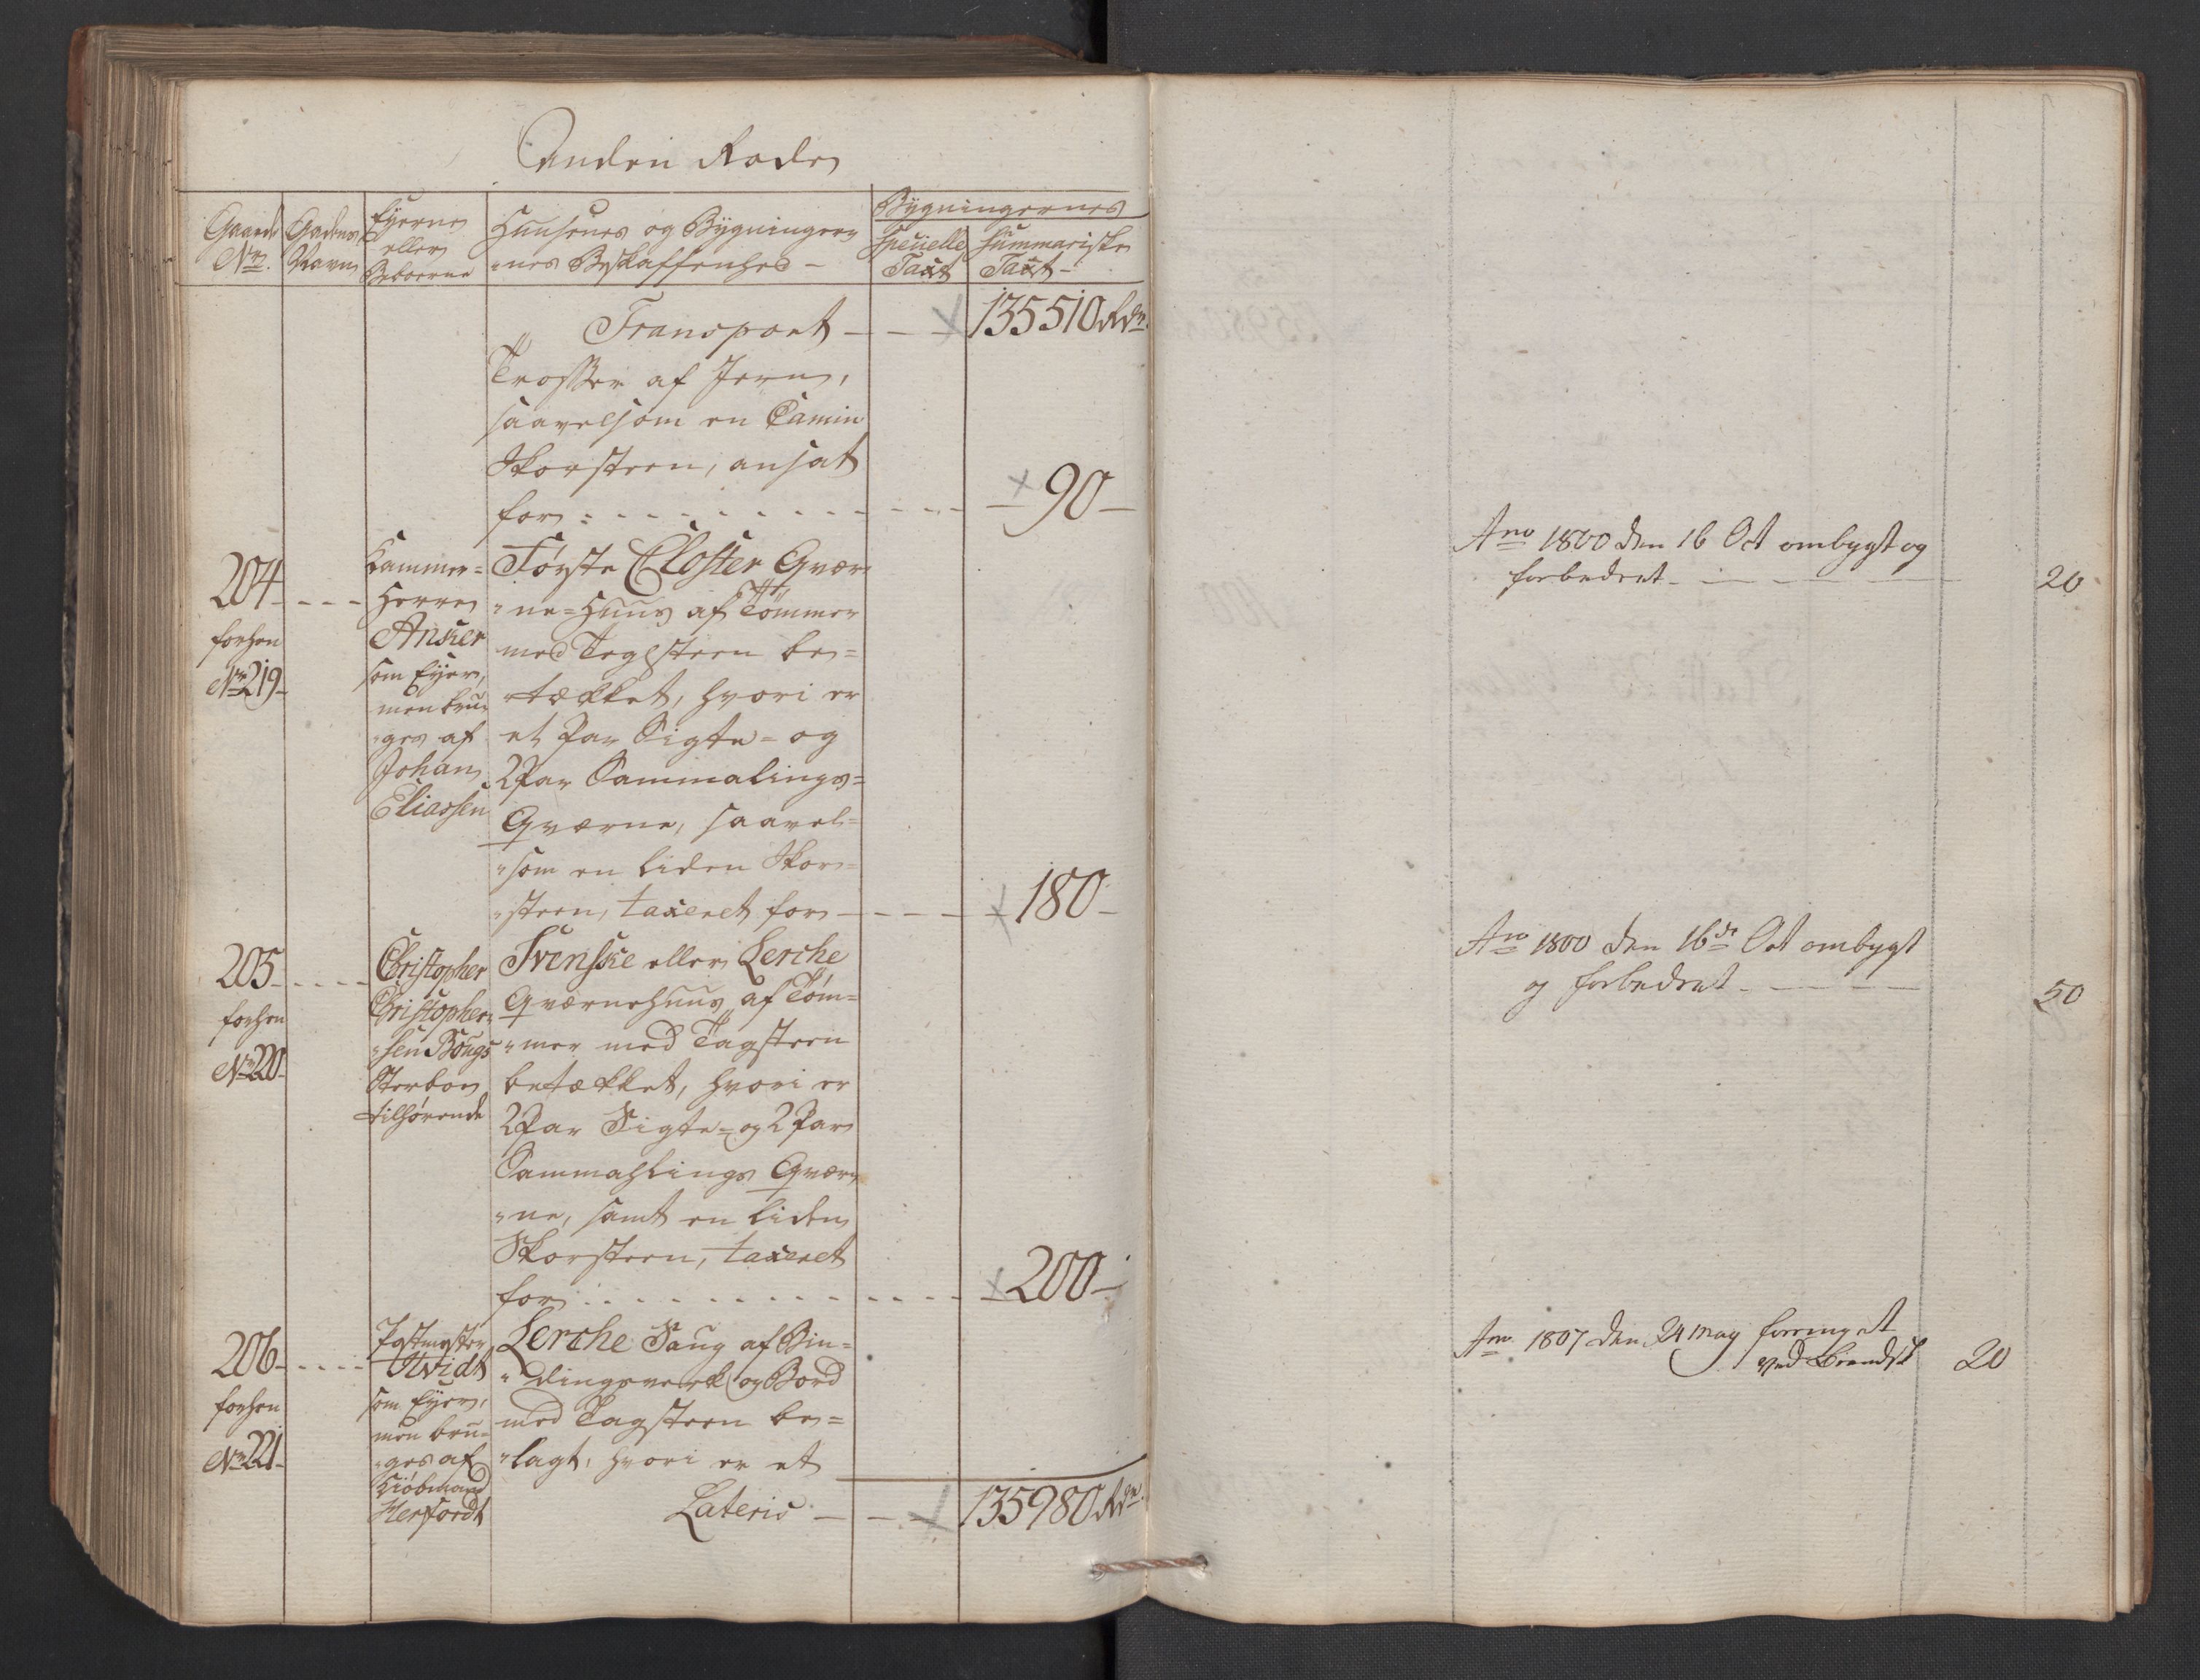 Anden Rode
Gaards No.
Gadens Navn
Eyerne eller Beboerne
Huusenes og Bygninger-
"nes Beskaffenhed -
Bygningernes
Specielle Taxt
Summariske Taxt -
Transport - - - 135510 Rdr.
Trosser af Jern,
saavelsom en Camin
Skorsteen, ansat
for . . . . . . . . . - 90 -
204 - - -
forhen
No. 219 -
Kammer=
Herre
Anker
som Eyer,
men bru-
"ges af
Johan
Eliassen
Første Closter Qvær-
"ne=Huus af Tømmer
med Teglsteen be=
"tækket, hvori er
et Par Sigte= og
2 Par Sammalings=
Qværne, saavel=
"som en liden Skor=
"steen, taxeret for - - - - 180 -
205 - . . .
forhen
No. 220 -
Christopher
Christopher-
"sen Bougs
Sterboe
tilhørende
Svenske eller Lerche
Qværnehuus af Tøm=
"mer med Tagsteen
betækket, hvori er
2 Par Sigte= og 2 Par
Sammahlings Qvær-
"ne, samt en liden
Skorsteen, taxeret
for . . . . . . . . . - 200 -
206 - . . .
forhen
No. 221 -
Postmester
Hvidt
som Eyer,
men bru-
"ges af
Kiøbmand
Herfordt
Lerche Saug af Bin=
"dingsverk og Bord
med Tagsteen be=
"lagt, hvori er et
Lateris - - - 135980 Rdr.
Ano 1800 den 16 Oct ombygt og
forbedret - - - - 20
Ano 1800 den 16de Oct ombygt
og forbedret - - - 50
Ano 1807 den 24 May forringet
ved Brændst 20